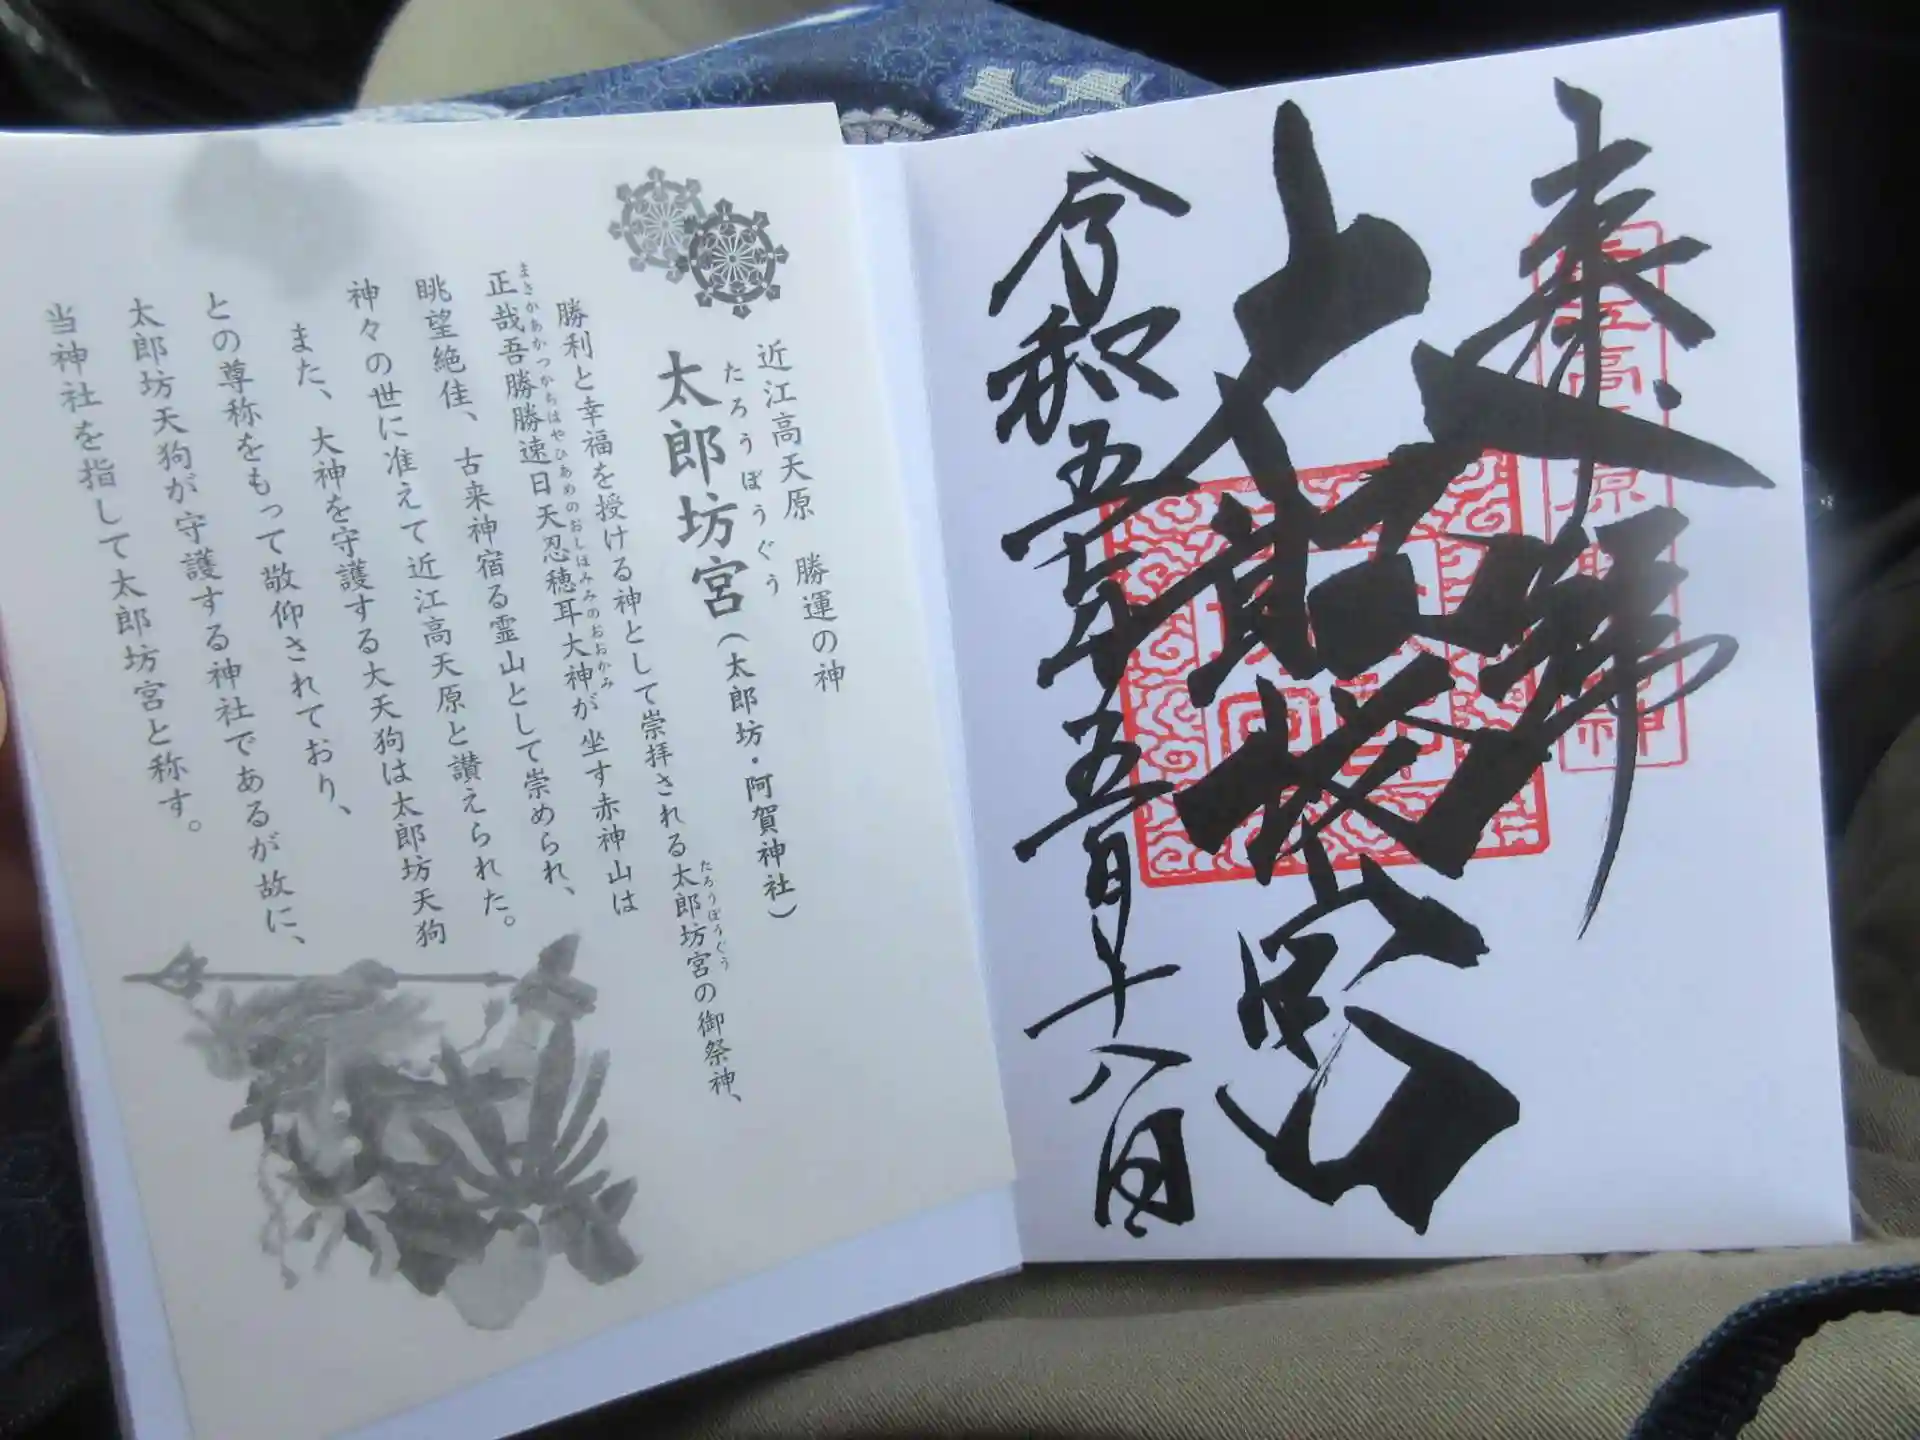 奉拝
太郎坊宮
令和五年五月十八日
近江高天原 勝運の神
たろうぼうぐう
太郎坊宮(太郎坊・阿賀神社)
勝利と幸福を授ける神として崇拝される太郎坊宮の御祭神、
たろうぼうぐう
正哉吾勝勝速日天忍穂耳大神が坐す赤神山は
まさかあかつかちはやひあめのおしほみみのおおかみ
眺望絶佳、古来神宿る霊山として崇められ、
神々の世に准えて近江高天原と讃えられた。
また、大神を守護する大天狗は太郎坊天狗
との尊称をもって敬仰されており、
太郎坊天狗が守護する神社であるが故に、
当神社を指して太郎坊宮と称す。